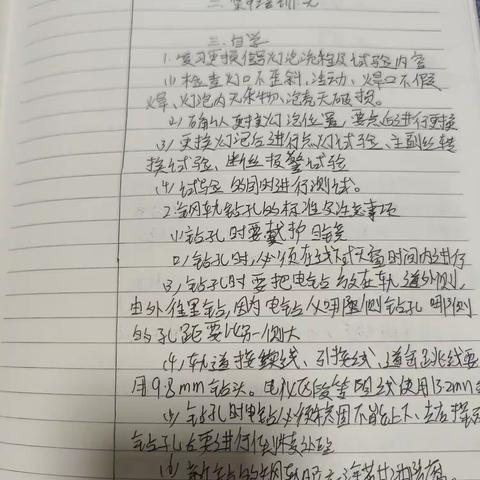 三、自学
1.复习更换信号灯泡流程及试验内容
(1)检查灯口不歪斜、活动、焊口不假
焊、灯泡内无杂物、泡壳无破损。
(2)确认更换灯泡位置,要点后进行更换
(3)更换灯泡后进行点灯试验、主副丝转
换试验、断丝报警试验
(4)试验的同时进行测试。
2.钢轨钻孔的标准及注意事项
(1)钻孔时要戴护目镜
(2)钻孔时,必须在天窗时间内进行
(3)钻孔时要把电钻放在轨道外侧,
由外往里钻,因为电钻
的孔距要比另一侧大
(4)轨道接续线、引接线、道岔跳线要
用9.8mm钻头。电化区段等阻线使用13.2mm
(5)钻孔时电钻必须稳固不能上下、左右摆动
钻孔后要进行倒棱处理
(6)新钻的钢轨眼